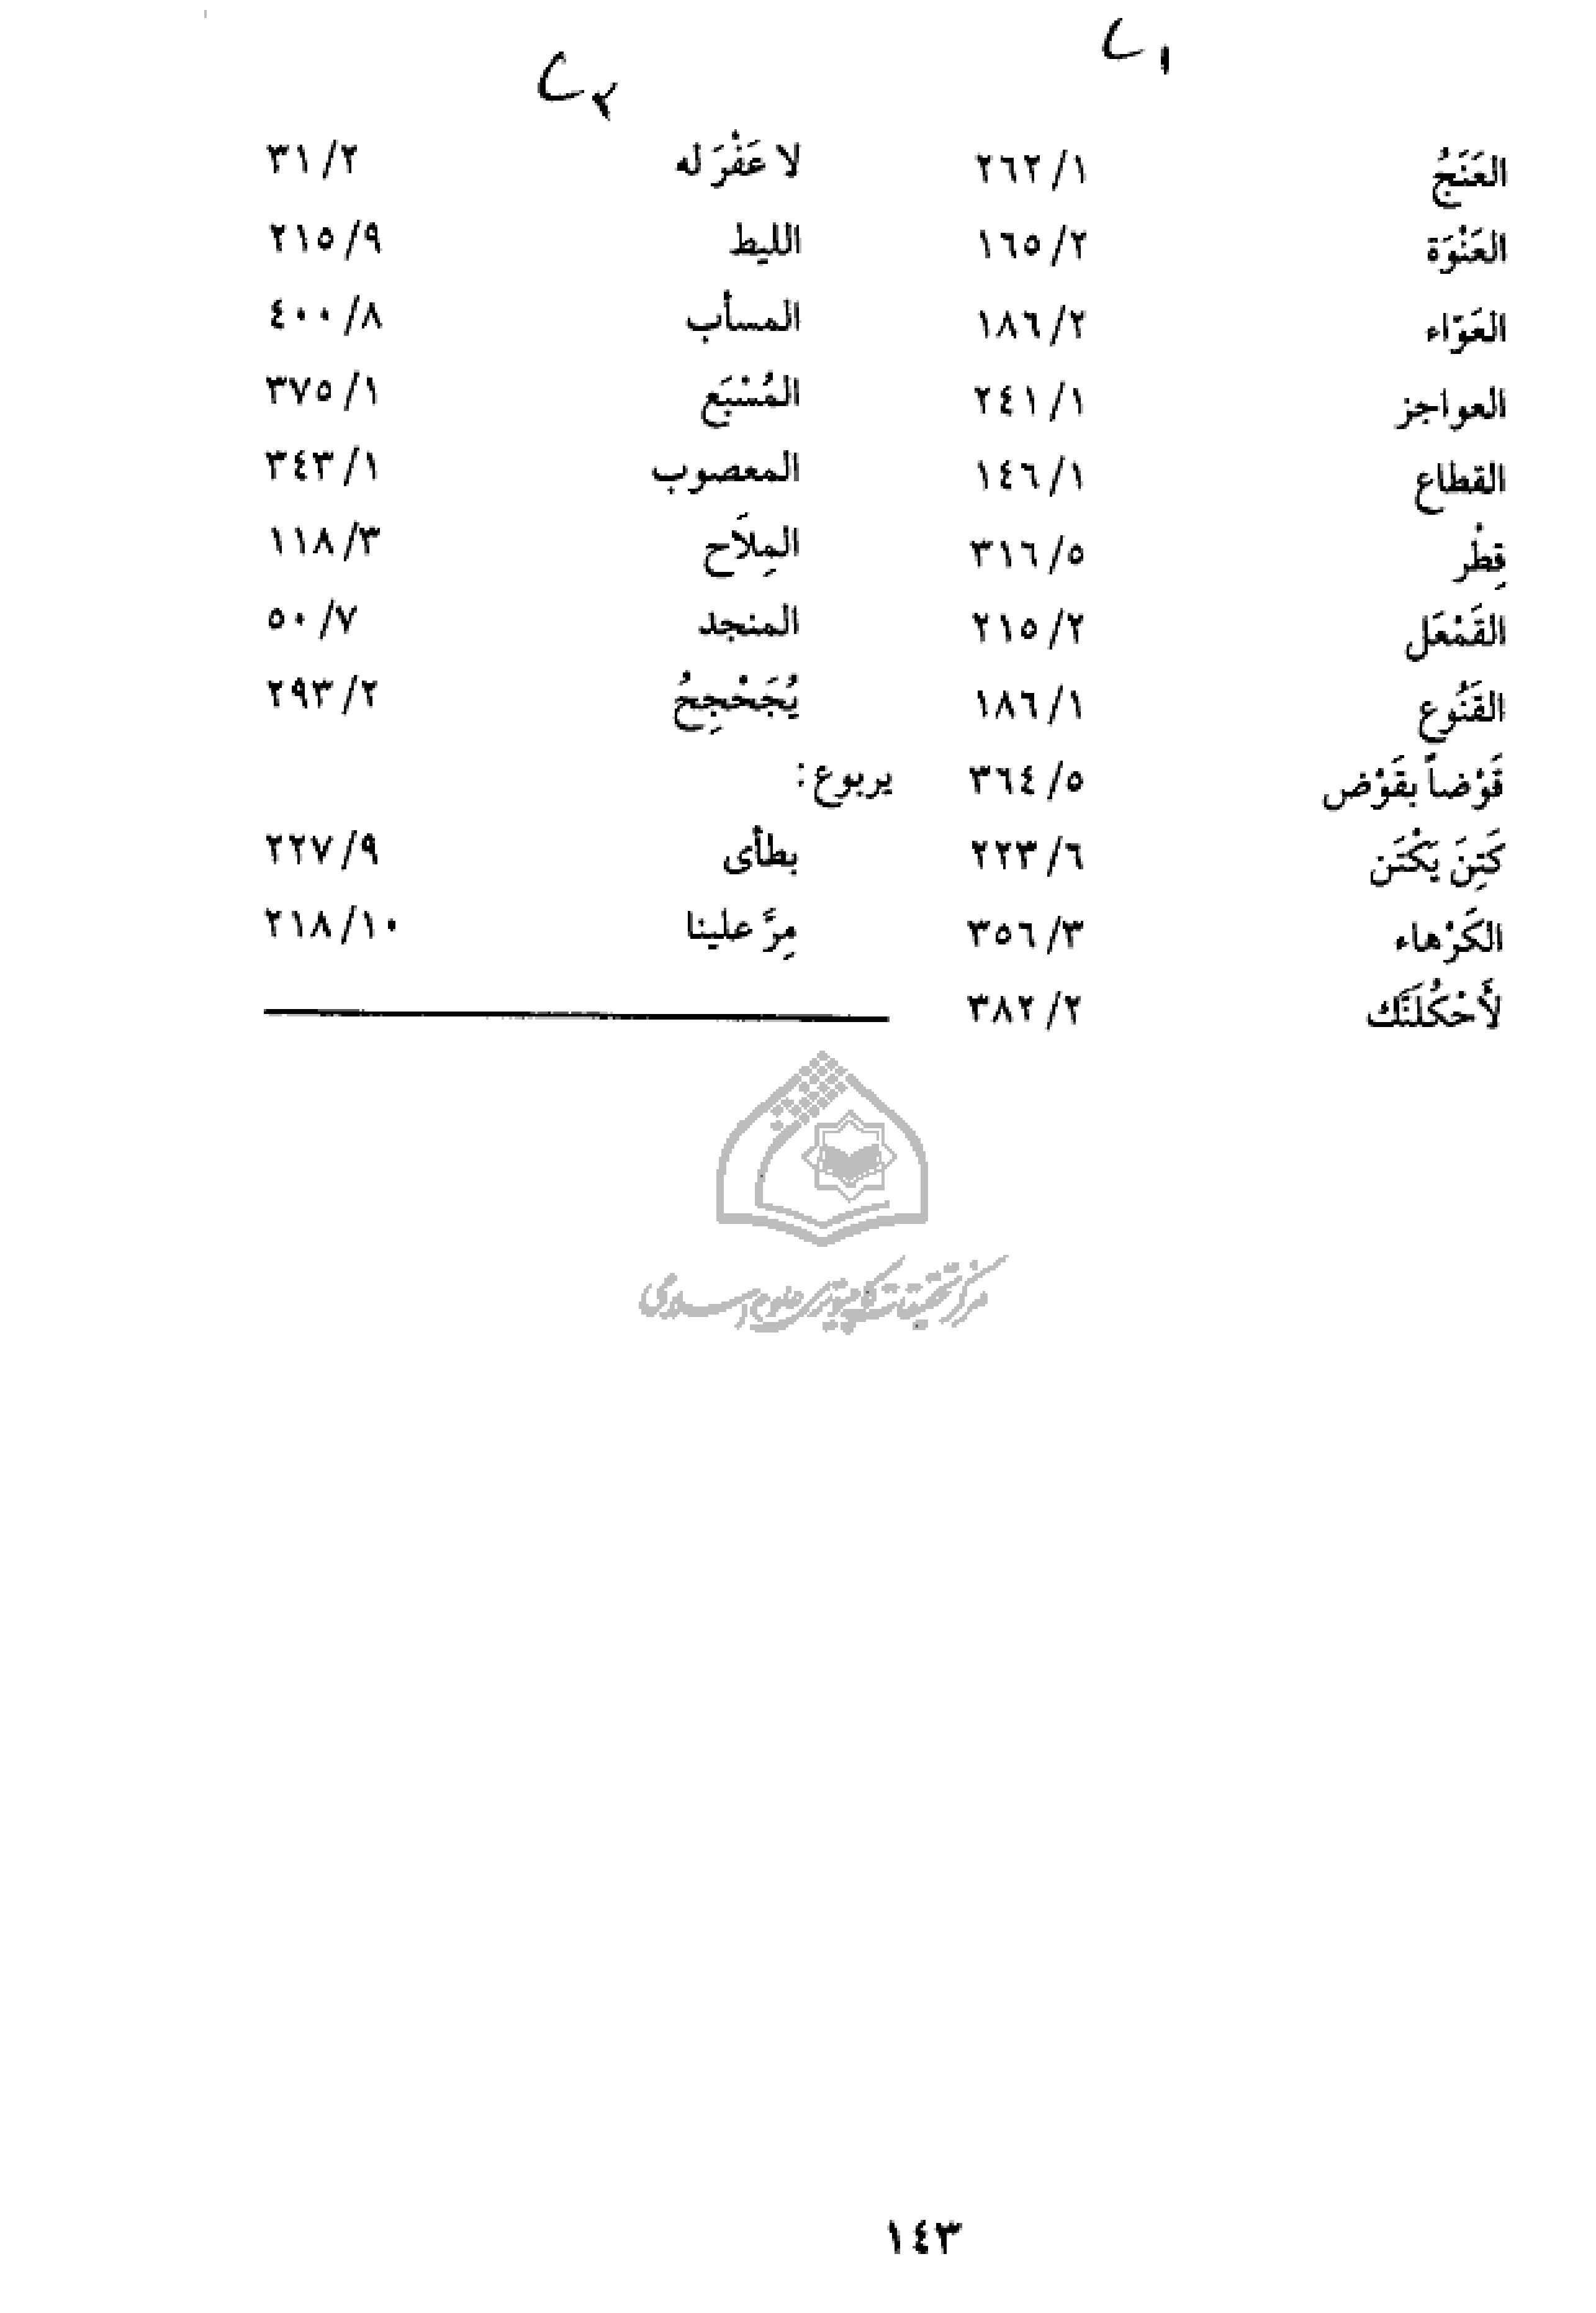 C١
العَنَجُ ١/ ٢٦٢
العَنْوَة ٢/ ١٦٥
العَوّاء ٢/ ١٨٦
العواجز ١/ ٢٤١
القطاع ١/ ١٤٦
قِطْر ٥/ ٣١٦
القَمْعَل ٢/ ٢١٥
القَنُوع ١/ ١٨٦
قَوْضاً بقَوْض ٥/ ٣٦٤
كَتِنَ يَكْتَن ٦/ ٢٢٣
الكَرْهاء ٣/ ٣٥٦
لأَحْكُلَنَّك ٢/ ٣٨٢
C٢
لا عَفْرَ له ٢/ ٣١
الليط ٩/ ٢١٥
المسأب ٨/ ٤٠٠
المُسْبَع ١/ ٣٧٥
المعصوب ١/ ٣٤٣
المِلاَح ٣/ ١١٨
المنجد ٧/ ٥٠
يُجَحْجِحُ ٢/ ٢٩٣
يربوع:
بطأى ٩/ ٢٢٧
مِرَّ علينا ١٠/ ٢١٨
مركز تحقيقات كامپيوترى علوم اسلامى
١٤٣